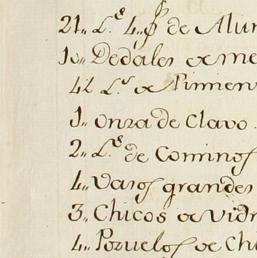 21,, L.s 4,, de Alum
10,, Dedales de me
42 L.s de Pimien
1,, onza de Clavo.
2,, L.s de Cominos
4,, Vasos grandes
3,, Chicos de Vidr
4,, Pozuelos de Chi